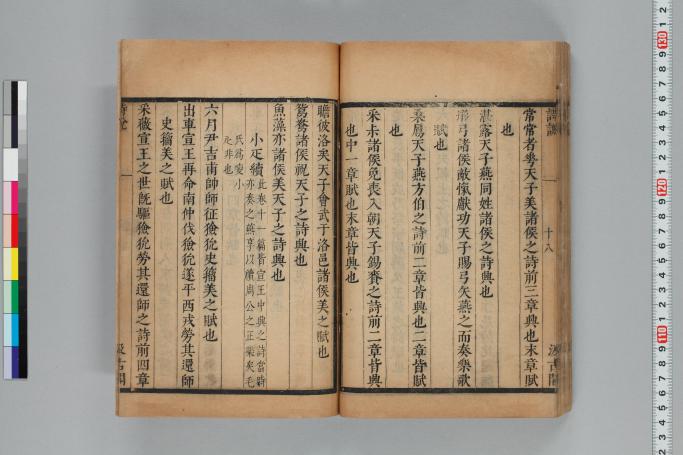 詩說
十八
汲古閣
常常者華天子美諸侯之詩前三章興也末章賦
也
湛露天子燕同姓諸侯之詩興也
彤弓諸侯敵愾獻功天子賜弓矢燕之而奏樂歌
賦也
桑扈天子燕方伯之詩前二章皆興也二章皆賦
也
采朩諸侯免喪入朝天子錫賚之詩前二章皆興
也中一章賦也末章皆興也
瞻彼洛矣天子會武于洛邑諸侯美之賦也
鴛鴦諸侯祝天子之詩興也
魚藻亦諸侯美天子之詩興也
小疋續此卷十一篇皆宣王中興之詩當時
亦奏之燕享以續周公之正樂矣毛
氏爲變小
疋非也
六月尹吉甫帥師征獫狁史籀美之賦也
出車宣王再命南仲伐獫狁遂平西戎勞其還師
史籀美之賦也
采薇宣王之世旣驅獫狁勞其還師之詩前四章
汲古閣
130
120
110